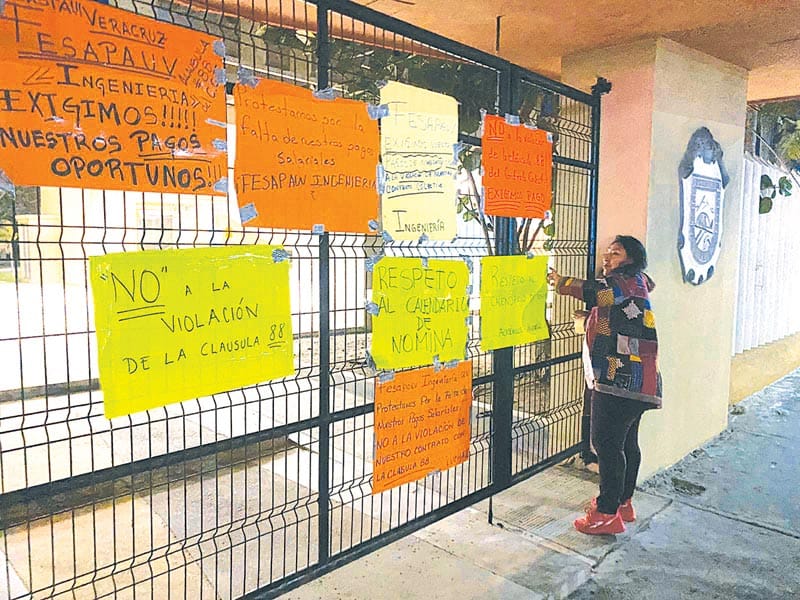 FESAPAUV VERACRUZ
FESAPAUV
"INGENIERIA"
EXIGIMOS!!!!!
NUESTROS PAGOS
OPORTUNOS!!!
Protestamos por la
falta de nuestros pagos
Salariales
"FESAPAUV INGENIERIA"
FESAPAUV
EXIGIMOS
A LA VIOLACIÓN
CONTRATO COLECTIVO
INGENIERÍA
NO A LA VIOLACION
de la Clausula 88
del Contrato Colectivo
EXIGIMOS PAGO
"NO" A LA
VIOLACIÓN
DE LA CLAUSULA 88
RESPETO
AL CALENDARIO
DE
NOMINA
RESPETO AL
CALENDARIO
FESAPAUV Ingeniería UV
Protestamos Por la Falta de
Nuestros Pagos Salariales
NO A LA VIOLACIÓN DE
NUESTRO CONTRATO CON
LA CLAÚSULA 88